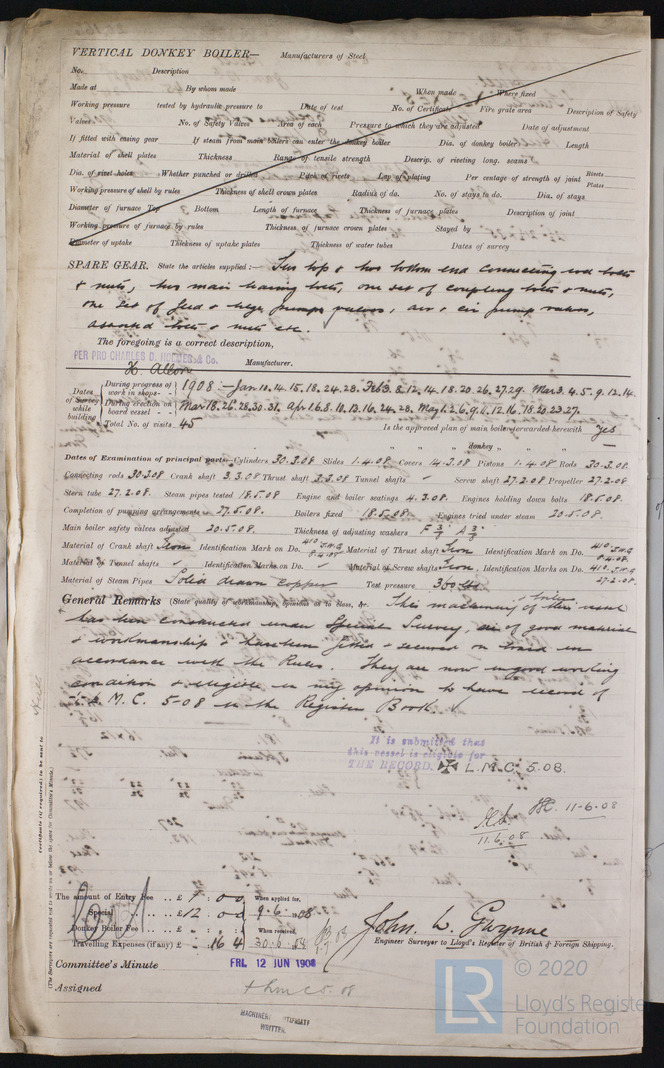 VERTICAL DONKEY BOILER— Manufacturers of Steel
No. Description
Made at By whom made When made Where fixed
Working pressure tested by hydraulic pressure to Date of test No. of Certificate Fire grate area Description of Safety
Valves No. of Safety Valves Area of each Pressure to which they are adjusted Date of adjustment
If fitted with easing gear If steam from main boilers can enter the donkey boiler Dia. of donkey boiler Length
Material of shell plates Thickness Range of tensile strength Descrip. of riveting long. seams
Dia. of rivet holes Whether punched or drilled Pitch of rivets Lap of plating Per centage of strength of joint Rivets Plates
Working pressure of shell by rules Thickness of shell crown plates Radius of do. No. of stays to do. Dia. of stays
Diameter of furnace Top Bottom Length of furnace Thickness of furnace plates Description of joint
Working pressure of furnace by rules Thickness of furnace crown plates Stayed by
Diameter of uptake Thickness of uptake plates Thickness of water tubes Dates of survey
SPARE GEAR. State the articles supplied:— Two top & two bottom end connecting rod bolts
& nuts, two main bearing bolts, one set of coupling bolts & nuts,
one set of feed & bilge pump valves, air & cir pump valves,
assorted bolts & nuts etc.
The foregoing is a correct description,
PER PRO CHARLES D. HOLMES & Co. Manufacturer.
Dates of Survey while building
During progress of work in shops - - 1908:- Jan 10.14.15.18.24.28. Feb 3.8.12.14.18.20.26.27.29. Mar 3.4.5.9.12.14.
During erection on board vessel - - Mar 18.26.28.30.31. Apr 1.6.8.10.13.16.24.28. May 1.2.6.9.11.12.16.18.20.23.27.
Total No. of visits 45 Is the approved plan of main boiler forwarded herewith Yes
" " " donkey " " " —
Dates of Examination of principal parts—Cylinders 30.3.08. Slides 1.4.08 Covers 14.3.08 Pistons 1.4.08 Rods 30.3.08.
Connecting rods 30.3.08 Crank shaft 3.3.08 Thrust shaft 3.3.08 Tunnel shafts ✓ Screw shaft 27.2.08 Propeller 27.2.08
Stern tube 27.2.08. Steam pipes tested 18.5.08 Engine and boiler seatings 4.3.08. Engines holding down bolts 18.5.08.
Completion of pumping arrangements 27.5.08. Boilers fixed 18.5.08. Engines tried under steam 20.5.08.
Main boiler safety valves adjusted 20.5.08. Thickness of adjusting washers
Material of Crank shaft Iron Identification Mark on Do. Material of Thrust shaft Iron Identification Mark on Do.
Material of Tunnel shafts ✓ Identification Marks on Do. ✓ Material of Screw shafts Iron. Identification Marks on Do.
27.2.08.
Material of Steam Pipes Solid drawn copper Test pressure 360 lbs.
General Remarks (State quality of workmanship, opinions as to class, &c. This machinery & boiler of this vessel
has been constructed under Special Survey, are of good material
& workmanship & have been fitted & secured on board in
accordance with the Rules. They are now in good working
condition & eligible in my opinion to have record of
L.M.C. 5-08 in the Register Book.
It is submitted that
this vessel is eligible for
THE RECORD. ✠ L.M.C. 5.08.
11-6-08
11.6.08
Certificate (if required) to be sent to
(The Surveyors are requested not to write on or below the space for Committee's Minute.)
The amount of Entry Fee .. £ 1 : 0 : 0 When applied for,
Special .. .. £ 12 : 0 : 0 9.6.1908
Donkey Boiler Fee .. .. £ : : When received,
Travelling Expenses (if any) £ : 16 : 4 30.6.08
John L. Gwynne
Engineer Surveyor to Lloyd's Register of British & Foreign Shipping.
Committee's Minute FRI. 12 JUN 1908
Assigned + LMC 5.08
MACHINERY CERTIFICATE
WRITTEN.
© 2020
Lloyd's Register
Foundation